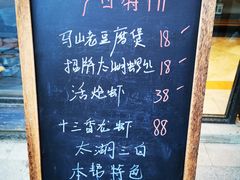 马山老豆腐煲 18
招牌太湖鹅丝 18
活炝虾 38
十三香龙虾 88
太湖三白
本帮特色